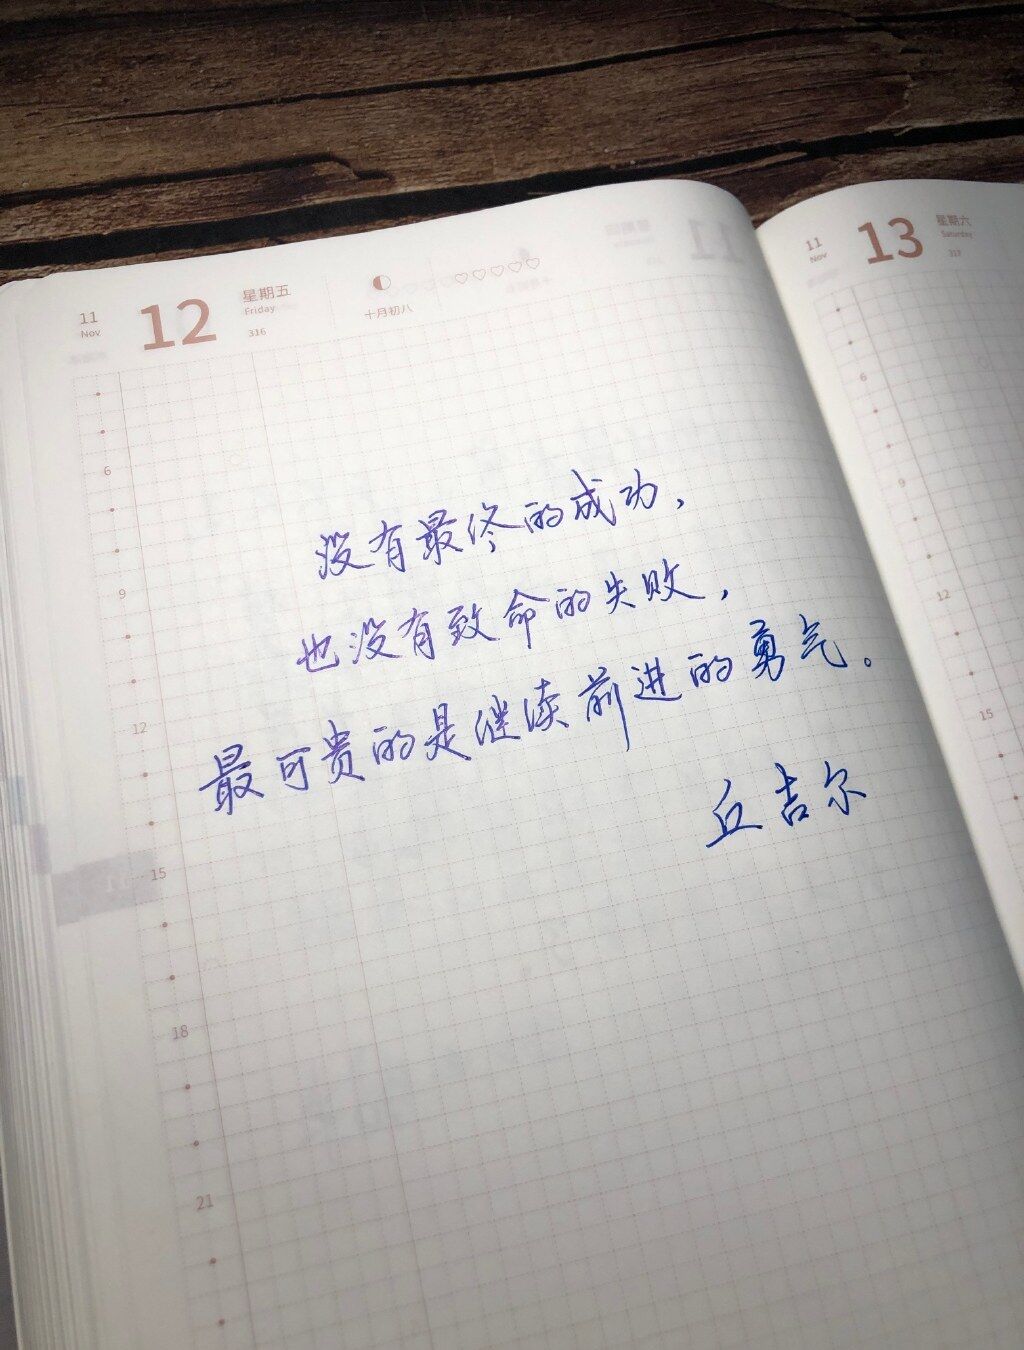 11
Nov
12
星期五
Friday
316
十月初八
6
9
12
15
18
21
没有最终的成功，
也没有致命的失败，
最可贵的是继续前进的勇气。
丘吉尔
11
Nov
13
星期六
Saturday
317
6
9
12
15